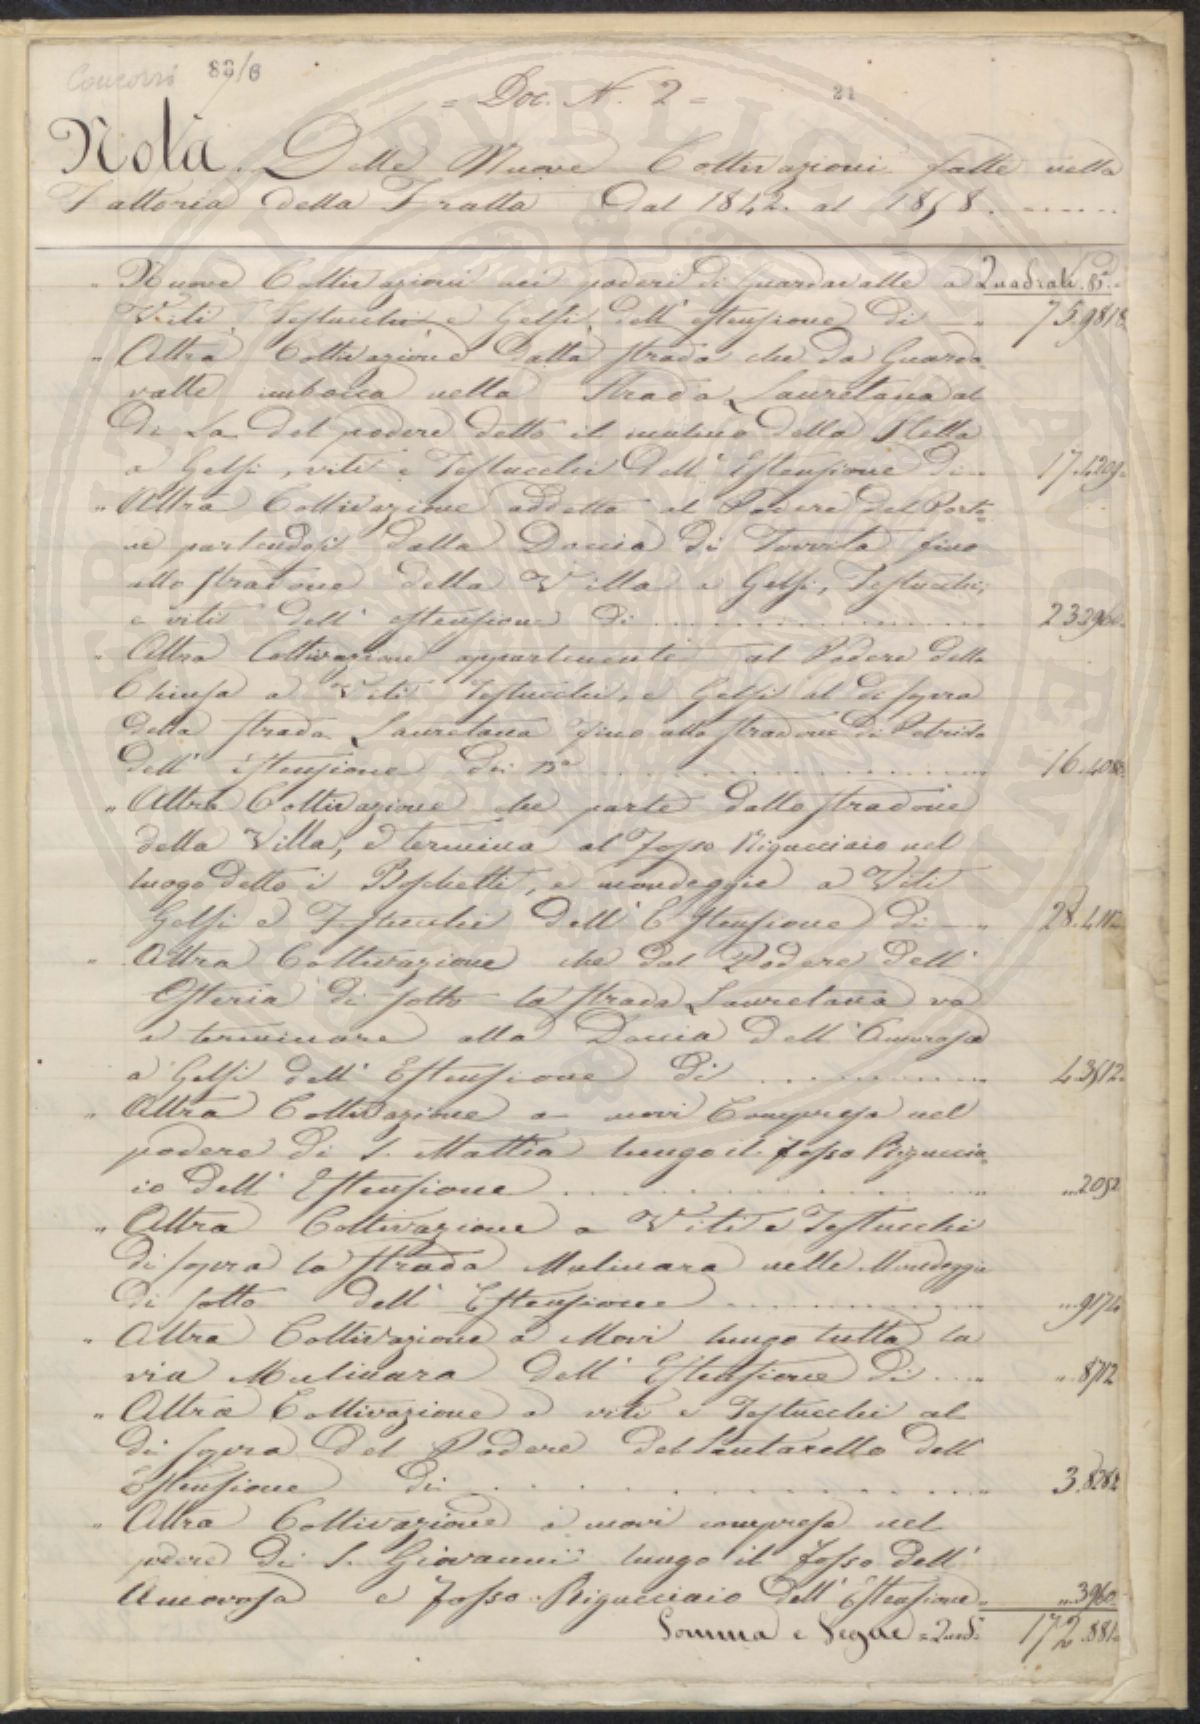 Concorsi 83/6
= Doc. N. 2 =
21
Nota. Delle Nuove Coltivazioni fatte nella
Fattoria della Fratta Dal 1842. al 1858.
" Nuove Coltivazioni nei poderi di Guardavalle a Quadrati.
Viti, Testucchi e Gelsi, dell' estensione di 75.9818
" Altra Coltivazione dalla strada che da Guarda=
valle imbocca nella Strada Lauretana al
di La del podere detto il mulino della Stella
a Gelsi, viti e Testucchi dell' Estensione di 17.1209
" Altra Coltivazione addetta al Podere del Porto=
ne partendosi dalla Doccia di Torrita fino
allo stradone della Villa a Gelsi, Testucchi,
e viti dell' estensione di 23.2960
" Altra Coltivazione appartenente al Podere della
Chiusa a Viti Testucchi, e Gelsi al di sopra
della strada Lauretana fino allo stradone di
dell' estensione di 16.
" Altra Coltivazione che parte dallo stradone
della Villa, e termina al Fosso Rigucciaio nel
luogo detto i Boschetti, e mondeggie a Viti
Gelsi e Testucchi dell' Estensione di 28.
" Altra Coltivazione che dal Podere dell'
Osteria di sotto la strada Lauretana va
a terminare alla Doccia dell' Amorosa
a Gelsi dell' Estensione di 4.3512
" Altra Coltivazione a movi Compresa nel
podere di S. Mattia lungo il fosso Riguccia=
io dell' Estensione 2052
" Altra Coltivazione a Viti e Testucchi
di sopra la strada Mulinara nelle Mondeggie
di sotto dell' Estensione 9174
" Altra Coltivazione a Movi lungo tutta la
via Mulinara dell' Estensione di 8712
" Altra Coltivazione a viti e Testucchi al
di sopra del Podere del Santarello dell'
Estensione di 3.8282
" Altra Coltivazione a movi compresa nel
podere di S. Giovanni lungo il fosso dell'
Amorosa e fosso Rigucciaio dell' Estensione 3960
Somma e Segue = Quad.i 172.881